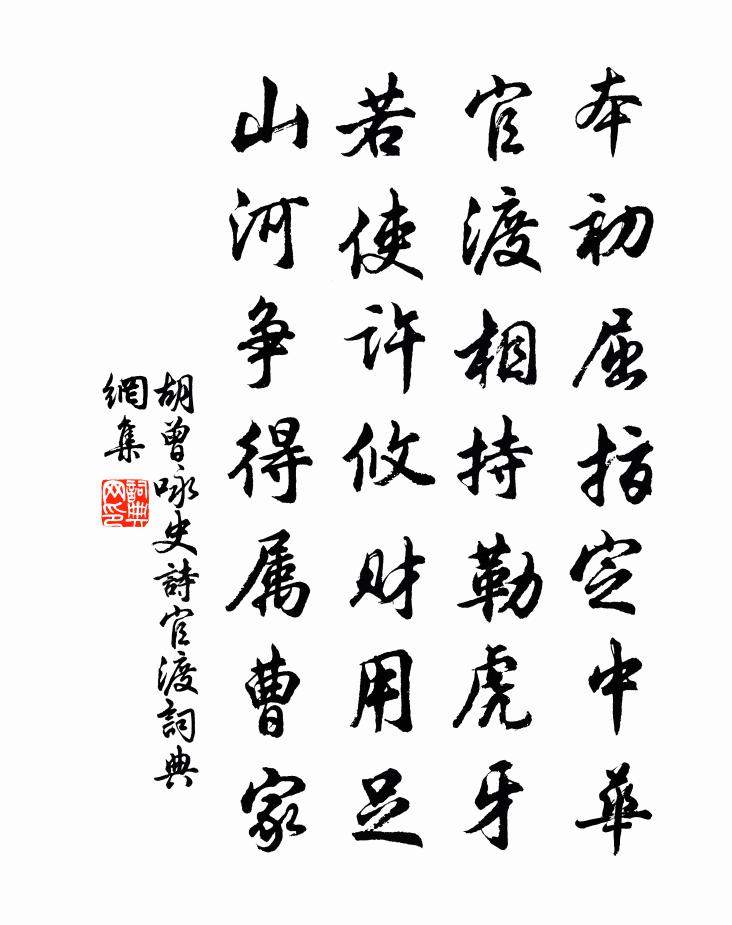 本初屈指定中華
官渡相持勒虎牙
若使許攸財用足
山河争得属曹家
胡曾咏史詩官渡詞典
網集
詞典网印